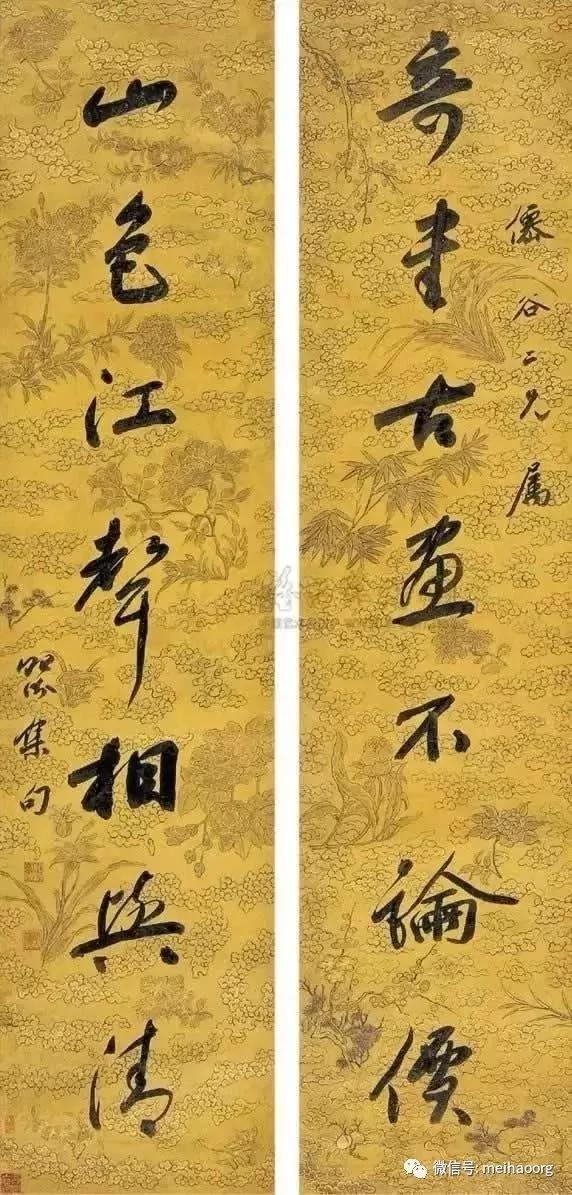 僊谷二兄属
奇書古畫不論價
山色江聲相與清
集句
微信号: meihaoorg